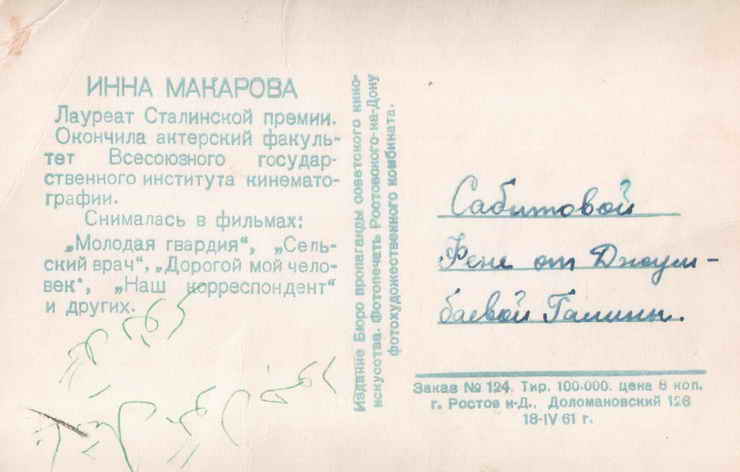 ИННА МАКАРОВА
Лауреат Сталинской премии.
Окончила актерский факуль-
тет Всесоюзного государ-
ственного института кинемато-
графии.
Снималась в фильмах:
„Молодая гвардия", „Сель-
ский врач", „Дорогой мой чело-
век", „Наш корреспондент"
и других.
Издание Бюро пропаганды советского кино-
искусства. Фотопечать Ростовского-на-Дону
фотохудожественного комбината.
Сабитовой
Фене от Джоум-
баевой Галины.
Заказ № 124. Тир. 100.000. цена 8 коп.
г. Ростов н-Д., Доломановский 126
18-IV 61 г.